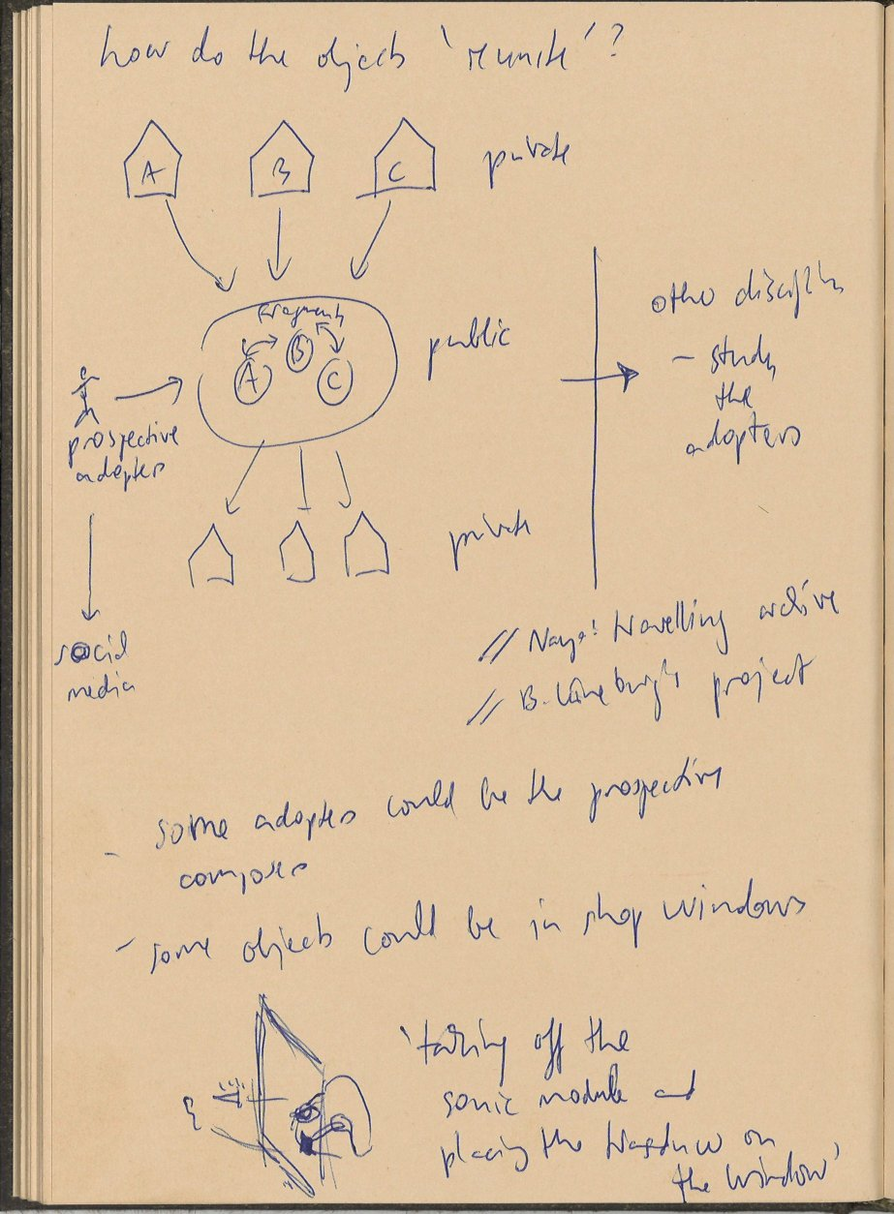 how do the objects 'reunite'?
A B C private
fragments
A B C
public
prospective
adopters
private
social
media
other disciplin
- study
the
adopters
// travelling archive
// B. project
- some adopters could be the prospective
composers
- some objects could be in shop windows
'taking off the
sonic module and
placing the transducer on
the window'